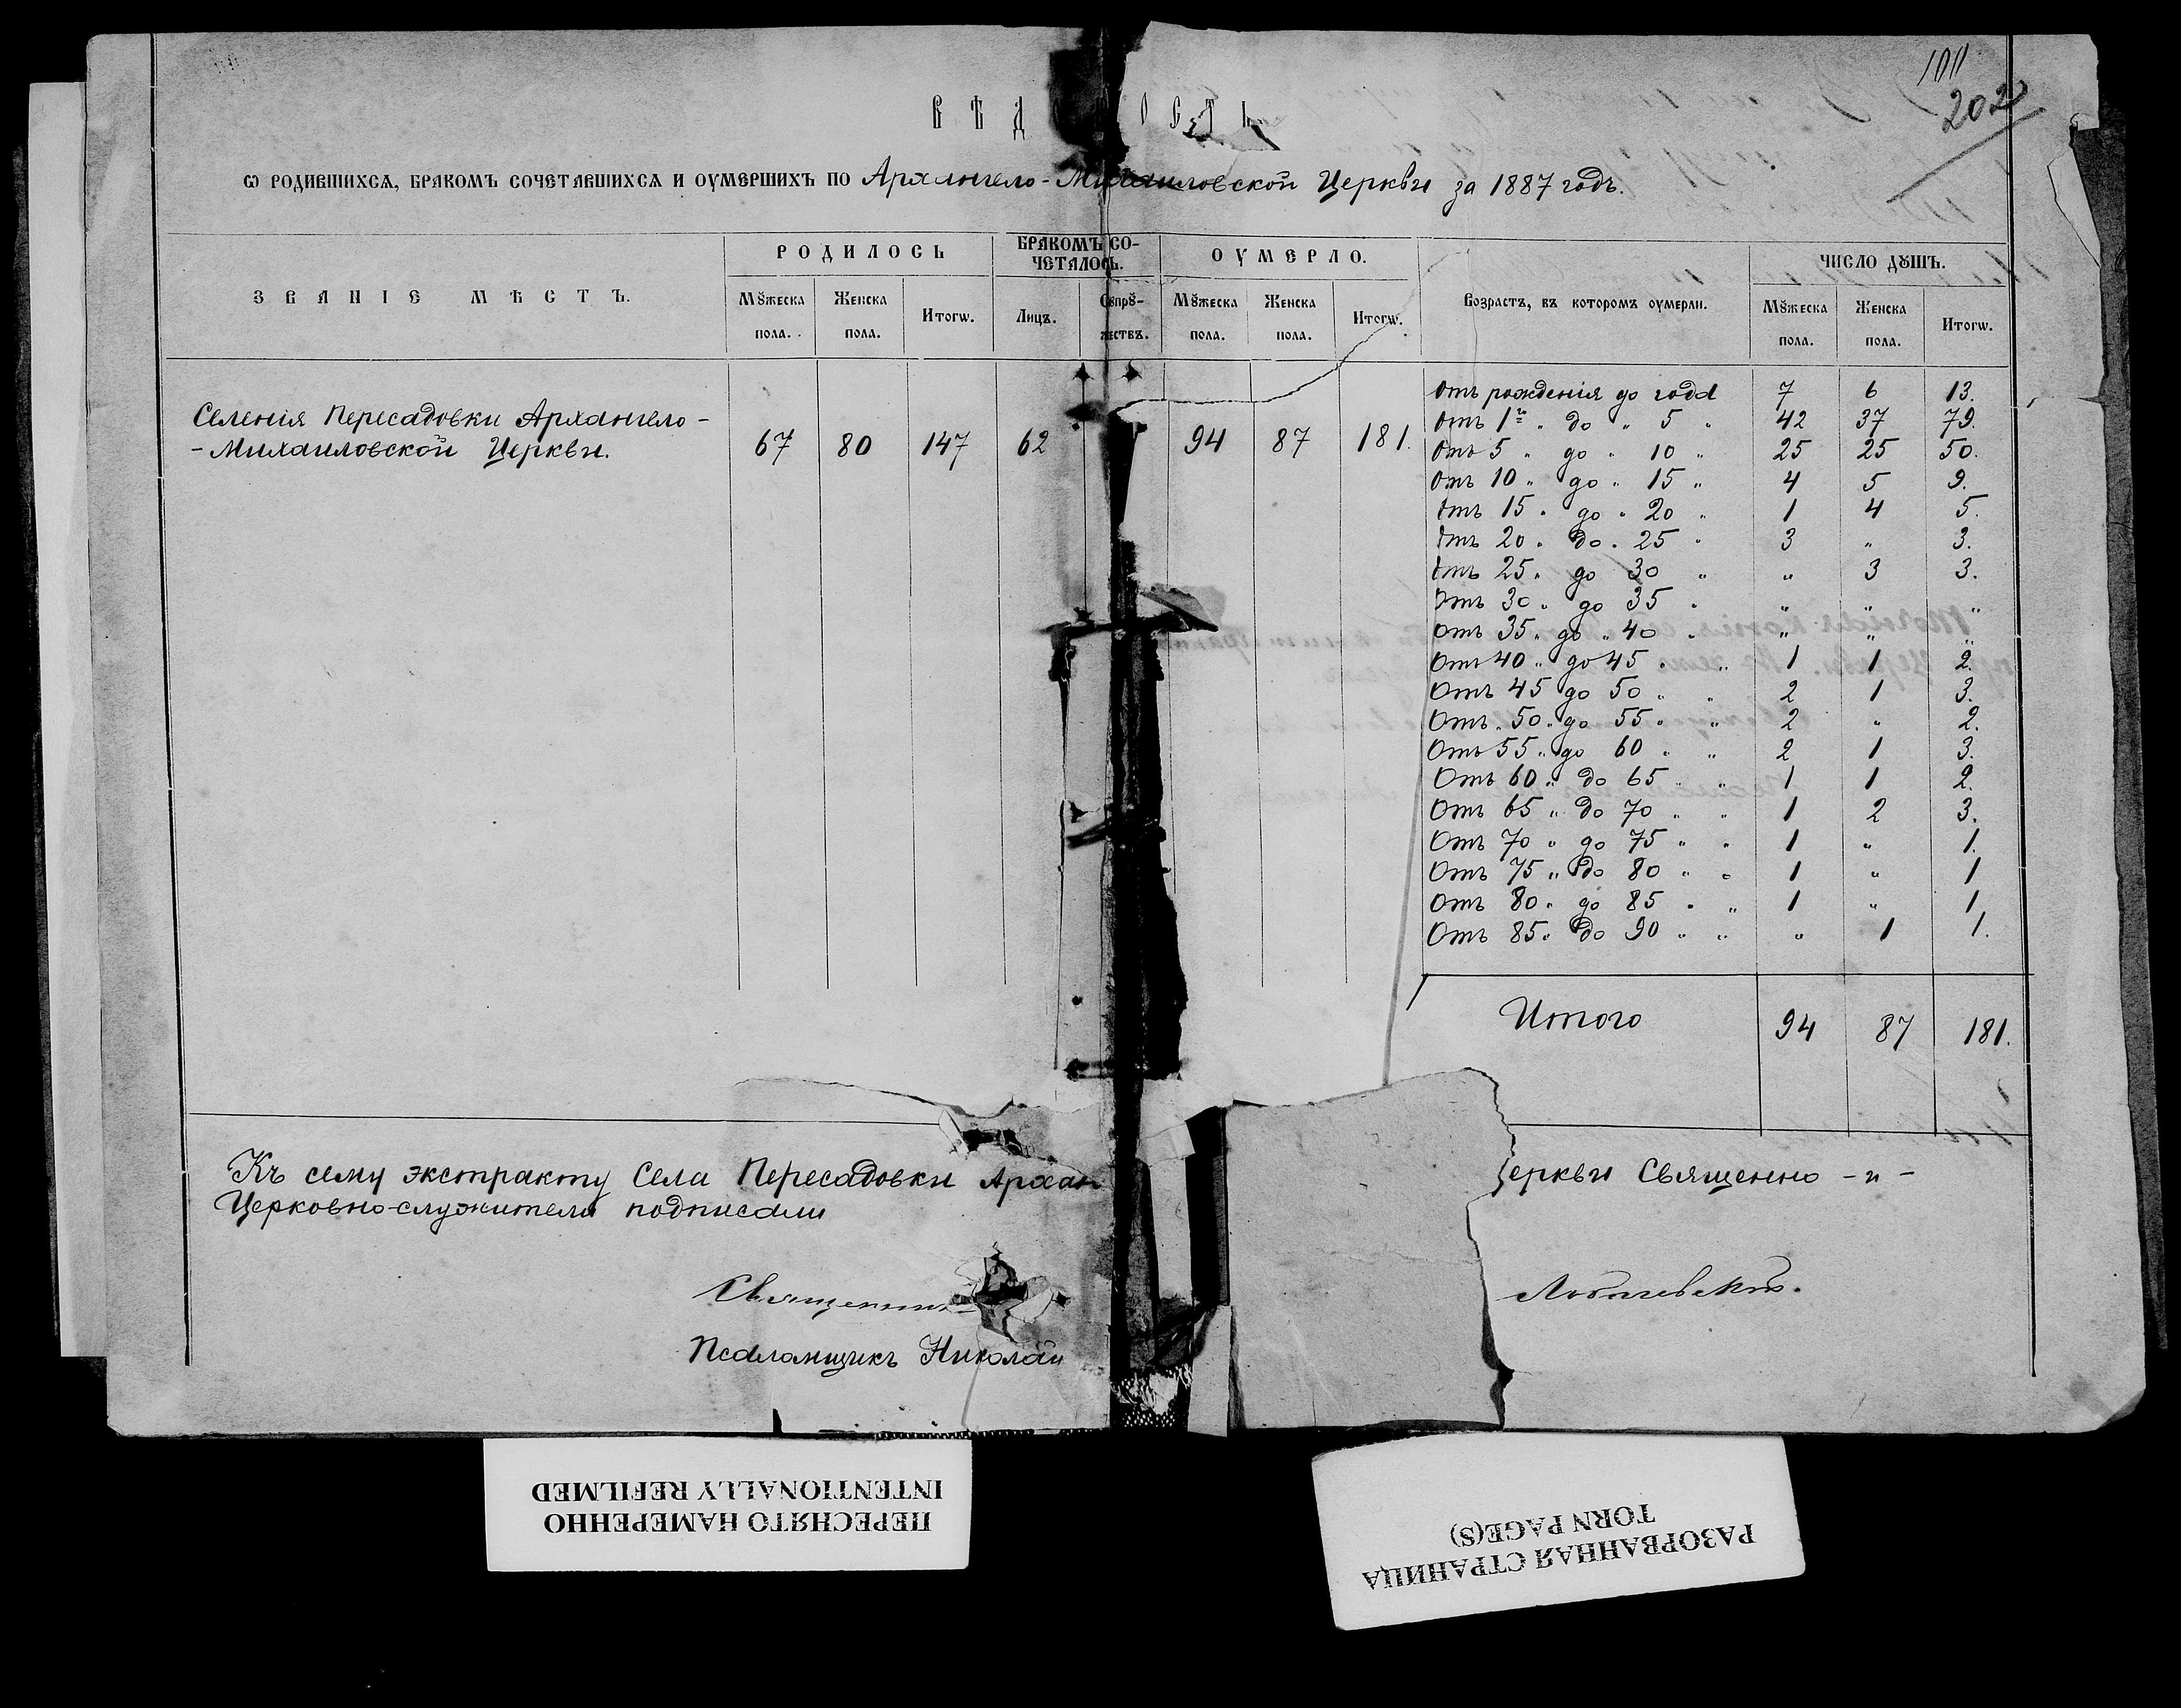 100
202
ВѢД ОСТЬ
Ѡ РОДИВШИХСѦ, БРАКОМЪ СОЧЕТАВШИХСѦ И ОУМЕРШИХЪ ПО Архангело-Михаиловской Церкви за 1887 годъ.
ЗВАНІЕ МѢСТЪ.
РОДИЛОСЬ
БРАКОМЪ СО-
ЧЕТАЛОСЬ.
ОУМЕРЛО.
Возрастъ, въ которомъ оумерли.
ЧИСЛО ДꙊШЪ.
Мꙋжеска пола.
Женска пола.
Итогѡ.
Лицъ.
Сꙋпрꙋ-
жествъ.
Мꙋжеска пола.
Женска пола.
Итогѡ.
Мꙋжеска пола.
Женска пола.
Итогѡ.
Селенія Пересадовки Архангело-
-Михаиловской Церкви.
67 80 147 62 94 87 181.
Отъ рожденія до года 7 6 13.
Отъ 1го „ до „ 5 „ 42 37 79.
Отъ 5 „ до „ 10 „ 25 25 50.
Отъ 10 „ до „ 15 „ 4 5 9.
Отъ 15 „ до „ 20 „ 1 4 5.
Отъ 20 „ до „ 25 „ 3 „ 3.
Отъ 25 „ до 30 „ „ 3 3.
Отъ 30 „ до 35 „ „ „ „
Отъ 35 „ до „ 40 „ „ „ „
Отъ 40 „ до 45 „ „ 1 1 2.
Отъ 45 до 50 „ „ 2 1 3.
Отъ „ 50 „ до 55 „ „ 2 „ 2.
Отъ 55 „ до 60 „ „ 2 1 3.
Отъ 60 „ до 65 „ „ 1 1 2.
Отъ 65 „ до 70 „ „ 1 2 3.
Отъ 70 „ до 75 „ „ 1 „ 1.
Отъ 75 „ до 80 „ „ 1 „ 1
Отъ 80 „ до 85 „ „ 1 „ 1,
Отъ 85 „ до 90 „ „ „ 1 1.
Итого 94 87 181.
Къ сему экстракту Села Пересадовки Архан еркви Священно-и-
Церковно-служители подписали
Священник
Псаломщикъ Николай
ПЕРЕСНЯТО НАМЕРЕННО
INTENTIONALLY REFILMED
РАЗОРВАННАЯ СТРАНИЦА
TORN PAGE(S)